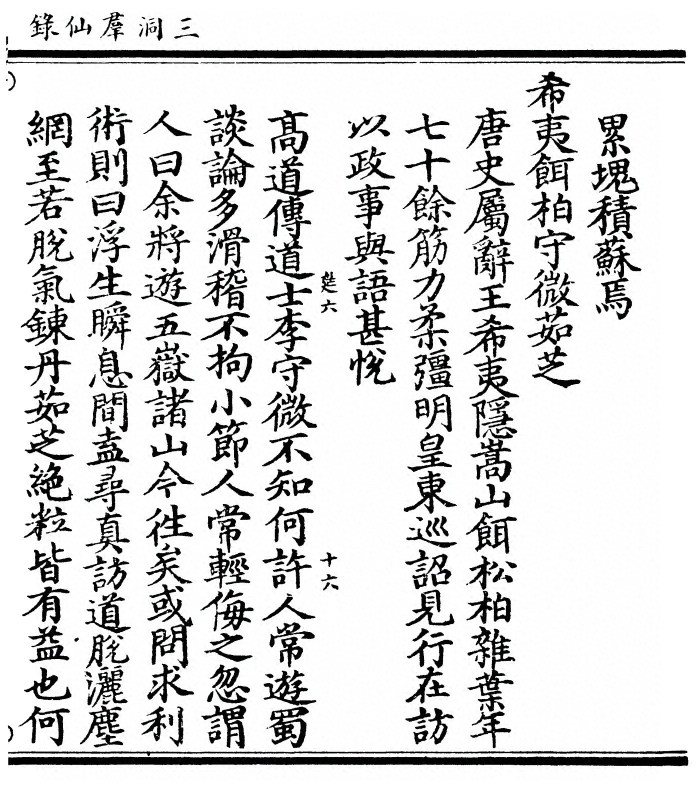 三洞羣仙錄
累塊積蘇焉
希夷餌柏守微茹芝
唐史屬辭王希夷隱嵩山餌松柏雜葉年
七十餘筋力柔彊明皇東巡詔見行在訪
以政事與語甚悅
筵六
十六
髙道傳道士李守微不知何許人常遊蜀
談論多滑稽不拘小節人常輕侮之忽謂
人曰余將遊五嶽諸山今徃矣或問求利
術則曰浮生瞬息間盍尋真訪道脫灑塵
網至若脫氣鍊丹茹芝絕粒皆有益也何